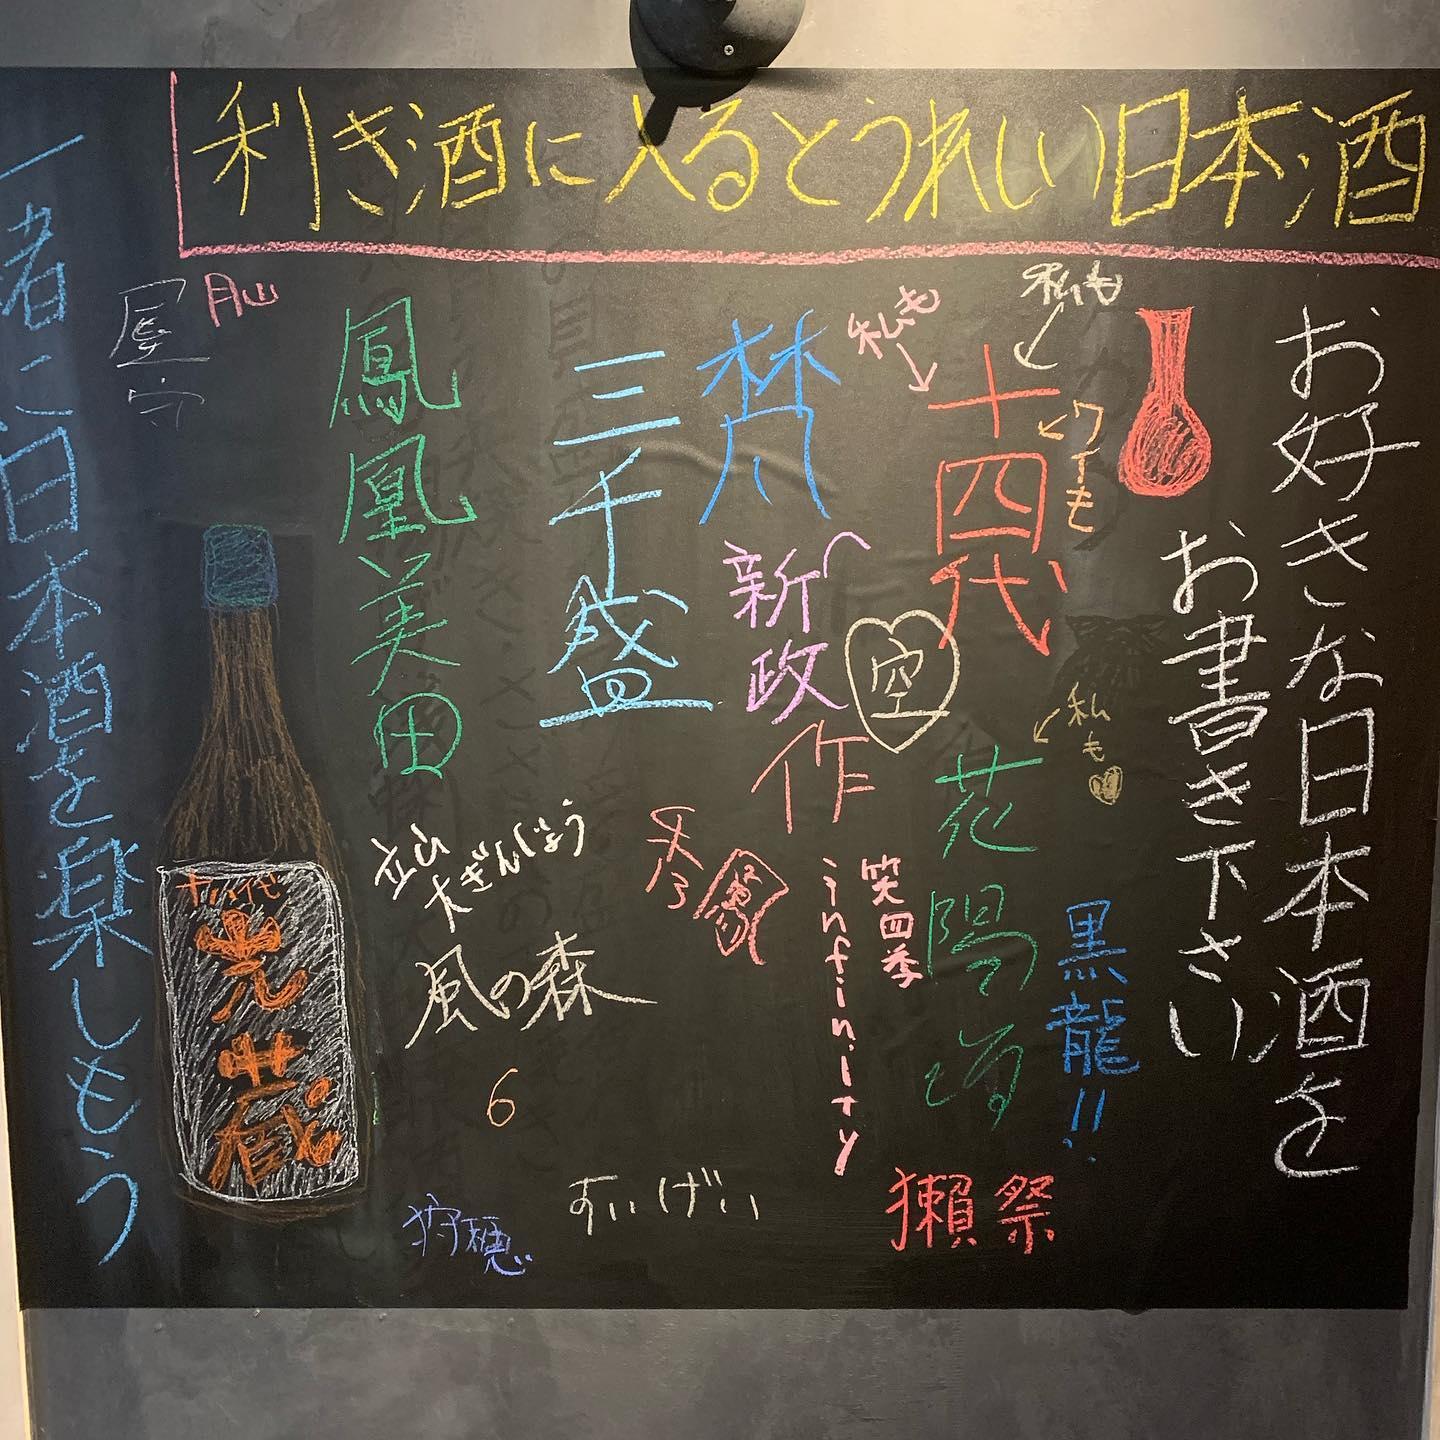 利き酒に入るとうれしい日本酒
お好きな日本酒を
お書き下さい
私も
私も
ワイも
十四代
私も
花陽浴
黒龍!!
獺祭
梵
新政
空
作
笑四季
infinity
三千盛
鳳凰美田
立山
大ぎんじょう
風の森
6
すいげい
狩穂
月山
屋守
十四代
光蔵
一者に日本酒を楽しもう